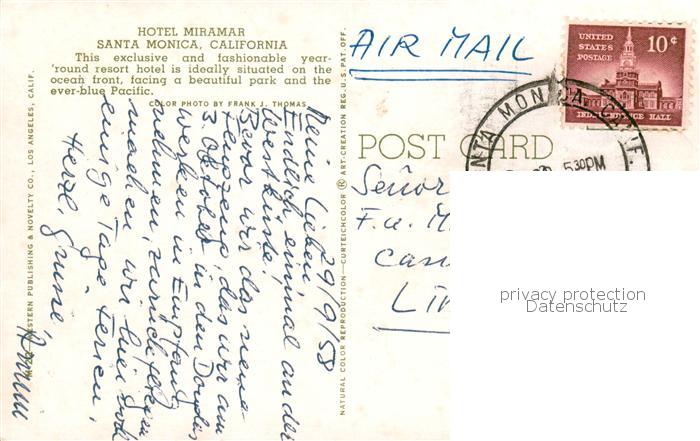 HOTEL MIRAMAR
SANTA MONICA, CALIFORNIA
This exclusive and fashionable year-
'round resort hotel is ideally situated on the
ocean front, facing a beautiful park and the
ever-blue Pacific.
COLOR PHOTO BY FRANK J. THOMAS
WESTERN PUBLISHING & NOVELTY CO., LOS ANGELES, CALIF.
29/9/58
Meine Lieben,
Endlich einmal an der
Westküste!
Bevor wir das neue
Flugzeug, das wir am
3. Oktober in den Douglas
werken in Empfang
nehmen, zurückfliegen
machen wir hier
einige Tage Ferien.
Herzl. Grüsse,
NATURAL COLOR REPRODUCTION—CURTEICHCOLOR ® ART-CREATION REG. U.S. PAT. OFF.
AIR MAIL
UNITED
STATES
POSTAGE
10¢
INDEPENDENCE HALL
NTA MON CA
5 30 PM
POST CARD
Señor
F.a. M
Cas
LI
privacy protection
Datenschutz